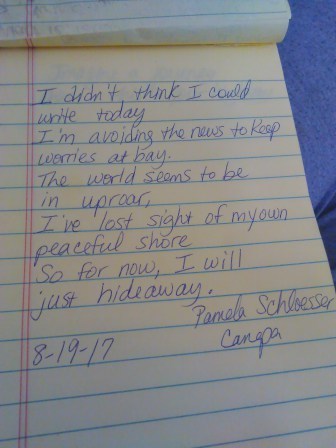 I didn't think I could
write today
I'm avoiding the news to keep
worries at bay.
The world seems to be
in uproar,
I've lost sight of my own
peaceful shore
So for now, I will
just hideaway.
Pamela Schloesser
Cangpa
8-19-17